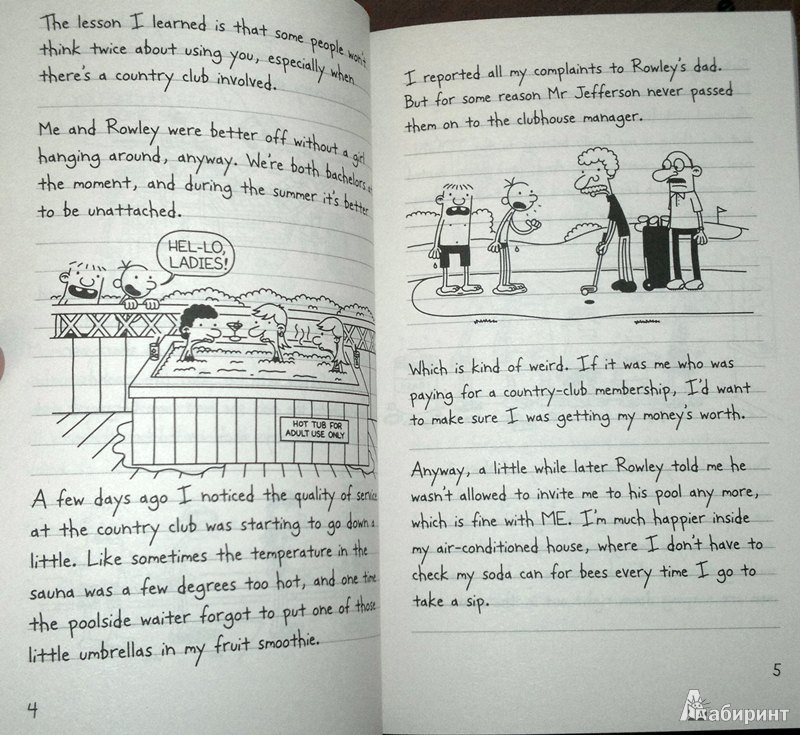 The lesson I learned is that some people won't
think twice about using you, especially when
there's a country club involved.
Me and Rowley were better off without a girl
hanging around, anyway. We're both bachelors at
the moment, and during the summer it's better
to be unattached.
HEL-LO,
LADIES!
HOT TUB FOR
ADULT USE ONLY
A few days ago I noticed the quality of service
at the country club was starting to go down a
little. Like sometimes the temperature in the
sauna was a few degrees too hot, and one time
the poolside waiter forgot to put one of those
little umbrellas in my fruit smoothie.
4
I reported all my complaints to Rowley's dad.
But for some reason Mr Jefferson never passed
them on to the clubhouse manager.
Which is kind of weird. If it was me who was
paying for a country-club membership, I'd want
to make sure I was getting my money's worth.
Anyway, a little while later Rowley told me he
wasn't allowed to invite me to his pool any more,
which is fine with ME. I'm much happier inside
my air-conditioned house, where I don't have to
check my soda can for bees every time I go to
take a sip.
5
Лабиринт